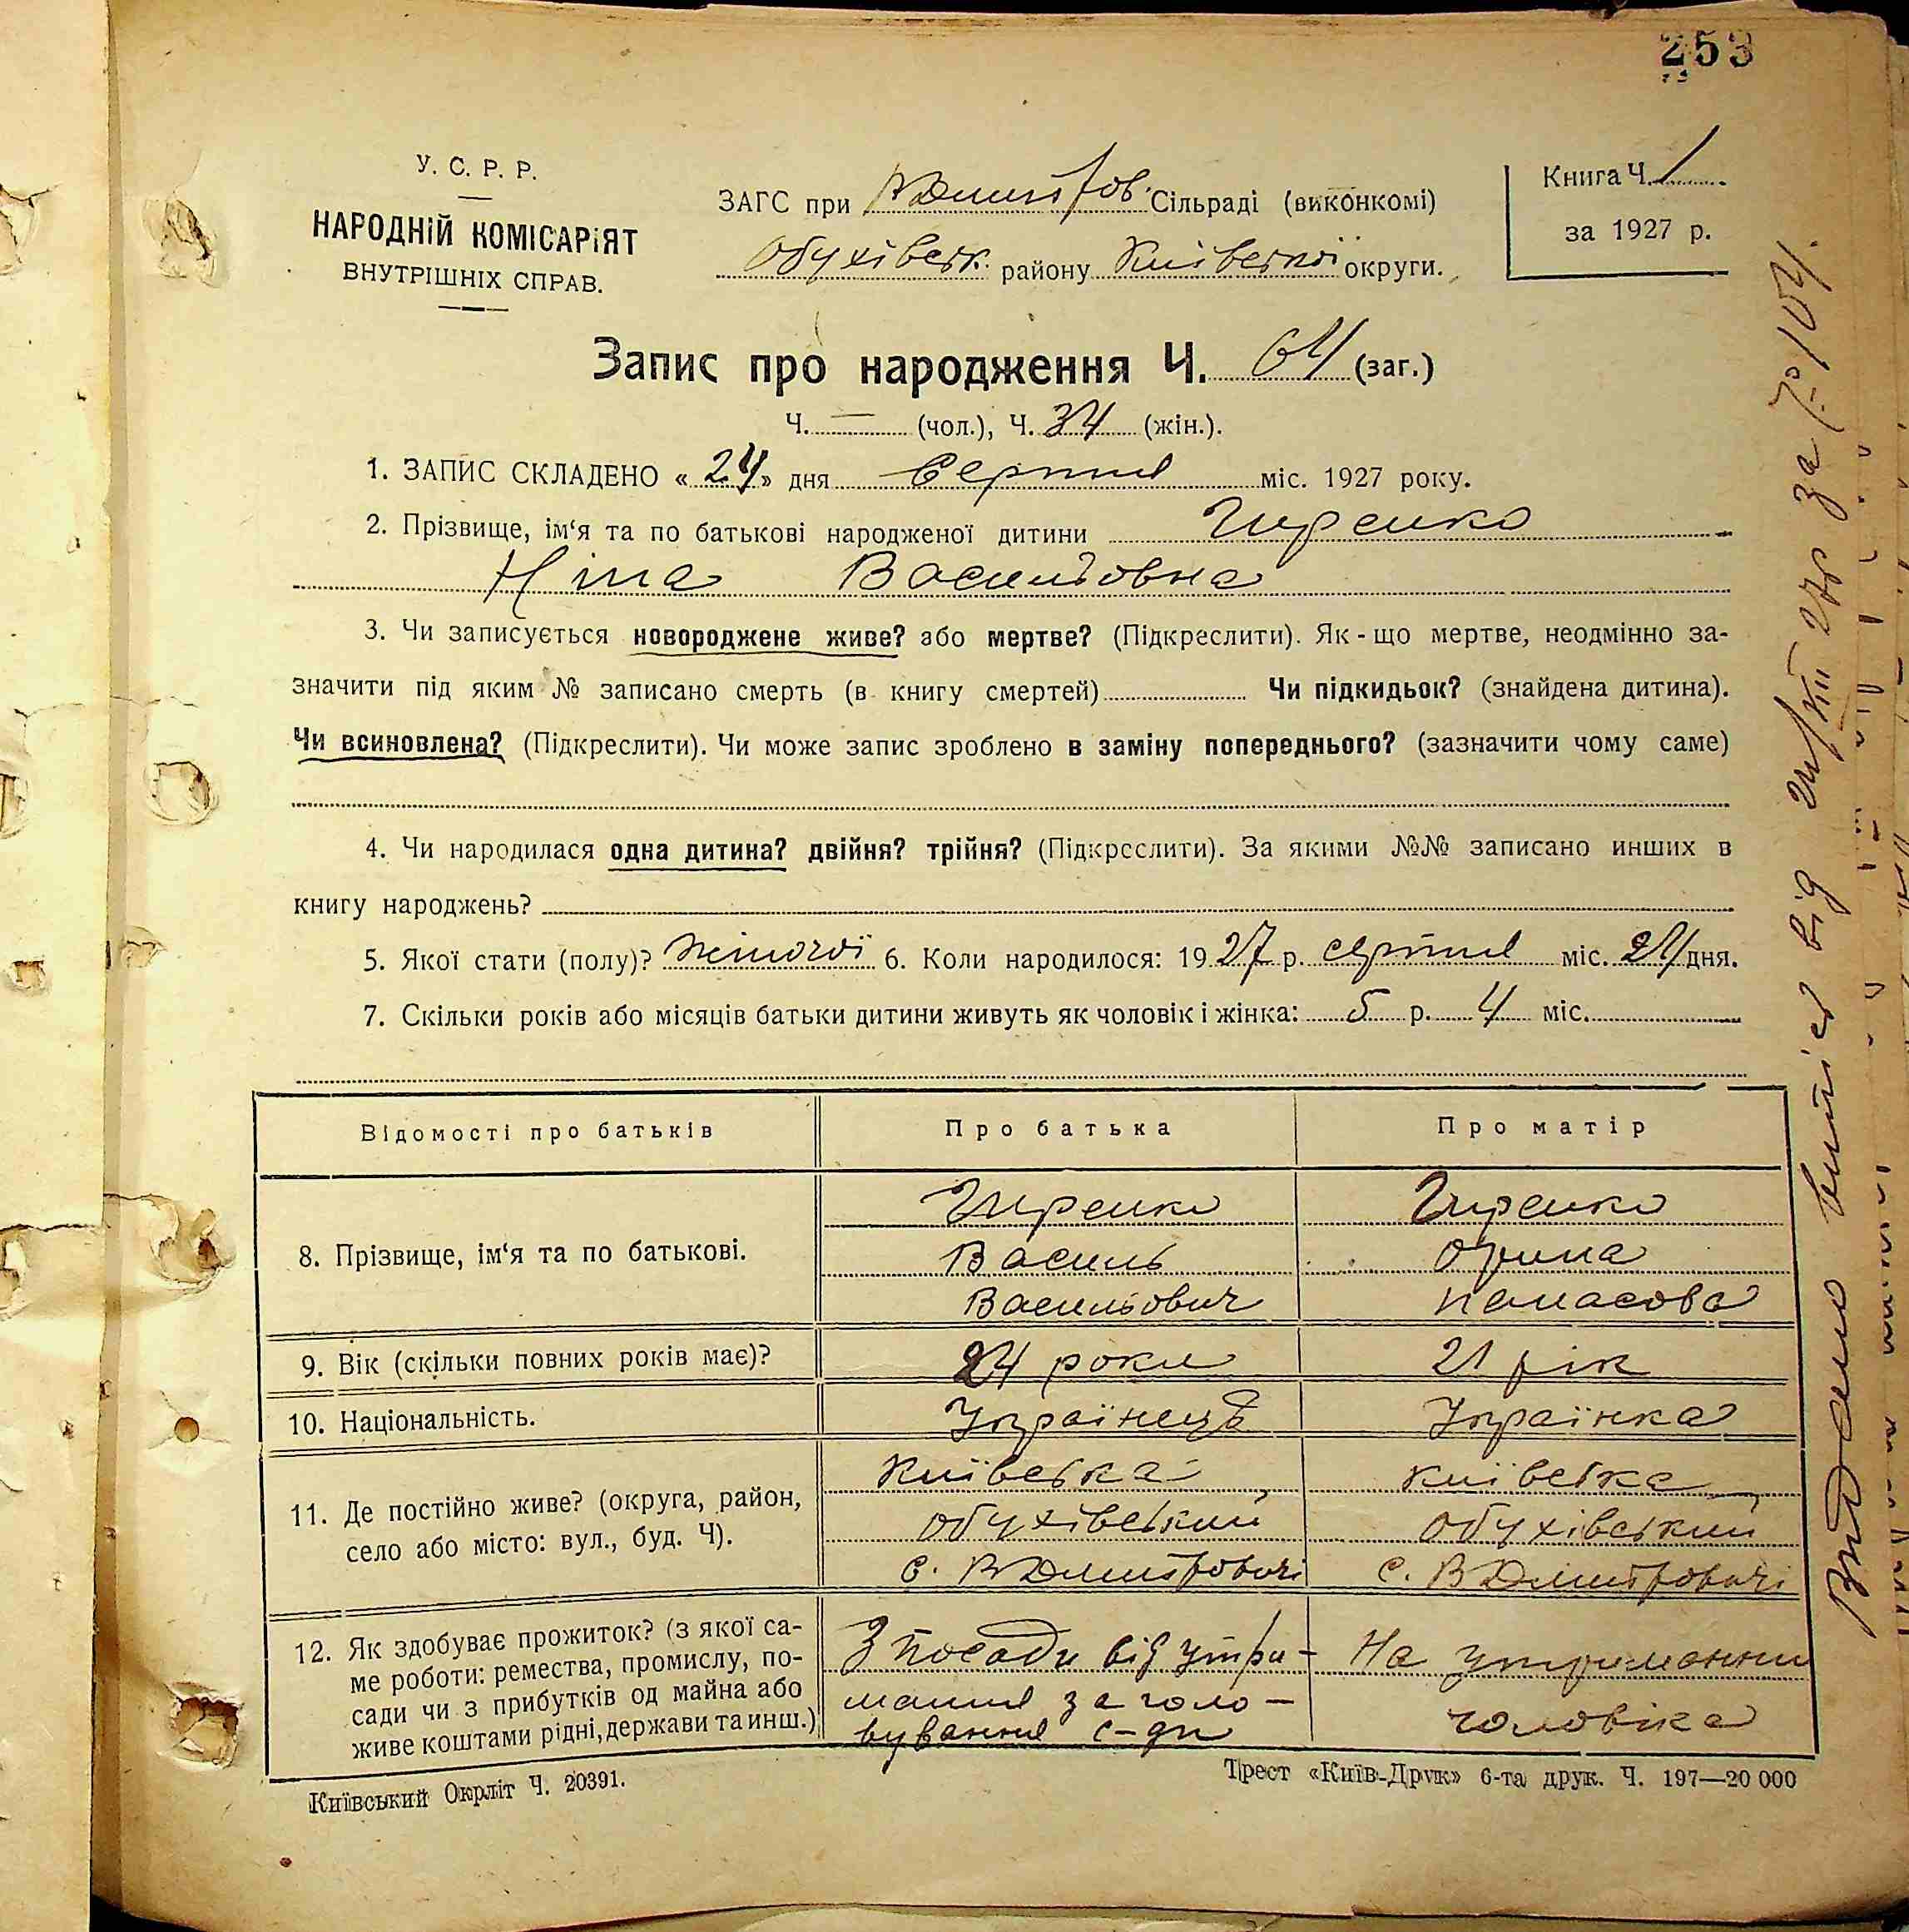 253
У. С. Р. Р.
НАРОДНІЙ КОМІСАРІЯТ
ВНУТРІШНІХ СПРАВ.
ЗАГС при ВДмитров. Сільраді (виконкомі)
Обухівськ. району Київської округи.
Книга Ч. 1
за 1927 р.
Запис про народження Ч. 64 (заг.)
Ч. — (чол.), Ч. 34 (жін.).
1. ЗАПИС СКЛАДЕНО « 24 » дня Серпня міс. 1927 року.
2. Прізвище, ім‘я та по батькові народженої дитини Гиренко
Ніна Васильовна
3. Чи записується новороджене живе? або мертве? (Підкреслити). Як-що мертве, неодмінно за-
значити під яким № записано смерть (в книгу смертей) Чи підкидьок? (знайдена дитина).
Чи всиновлена? (Підкреслити). Чи може запис зроблено в заміну попереднього? (зазначити чому саме)
4. Чи народилася одна дитина? двійня? трійня? (Підкреслити). За якими №№ записано инших в
книгу народжень?
5. Якої стати (полу)? жіночої 6. Коли народилося: 1927 р. серпня міс. 21 дня.
7. Скільки років або місяців батьки дитини живуть як чоловік і жінка: 5 р. 4 міс.
Відомості про батьків Про батька Про матір
8. Прізвище, ім‘я та по батькові.
Гиренко Гиренко
Василь Орина
Васильович Панасова
9. Вік (скільки повних років має)? 24 роки 21 рік
10. Національність. Українець Українка
11. Де постійно живе? (округа, район,
село або місто: вул., буд. Ч).
Київська Київська
Обухівський Обухівський
с. ВДмитровичі с. ВДмитровичі
12. Як здобуває прожиток? (з якої са-
ме роботи: ремества, промислу, по-
сади чи з прибутків од майна або
живе коштами рідні, держави та инш.)
З посади від утри- На утриманни
мання за голо- чоловіка
вування с-ди
Київський Окрліт Ч. 20391.
Трест «Київ-Друк» 6-та друк. Ч. 197—20 000
Видано витяг від за